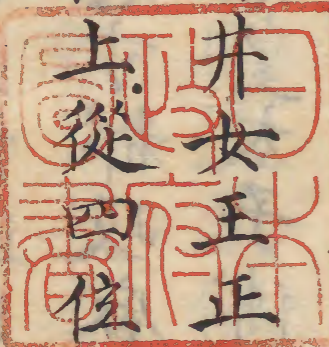 井女王正
上從四位